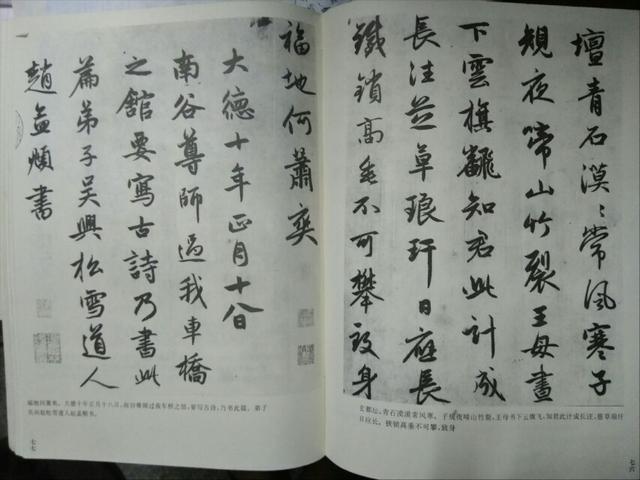 壇青石漠〻常風寒子
規夜啼山竹裂王母晝
下雲旗飜知君此計成
長往芝草琅玕日應長
鐵鎖高垂不可攀致身
玄都坛，青石漠漠常风寒。子规夜啼山竹裂，王母昼下云旗翻。知君此计成长往，芝草琅玕
日应长。铁锁高垂不可攀，致身
七六
福地何蕭爽
大德十年正月十八日
南谷尊師過我車橋
之館要寫古詩乃書此
篇弟子吳興松雪道人
趙孟頫書
福地何萧爽。大德十年正月十八日，南谷尊师过我车桥之馆，要写古诗，乃书此篇。弟子
吴兴松雪道人赵孟頫书。
七七